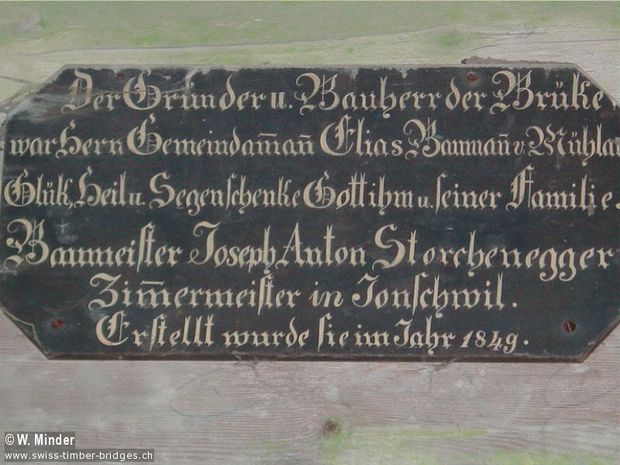 Der Gründer u. Bauherr der Brüke
war Herr Gemeindam̄an̄ Elias Bauman̄ v. Mühlau
Glük, Heil u. Segen schenke Gott ihm u. seiner Familie.
Baumeister Joseph Anton Storchenegger
Zim̄ermeister in Jonschwil.
Erstellt wurde sie im Jahr 1849.
©W. Minder
www.swiss-timber-bridges.ch